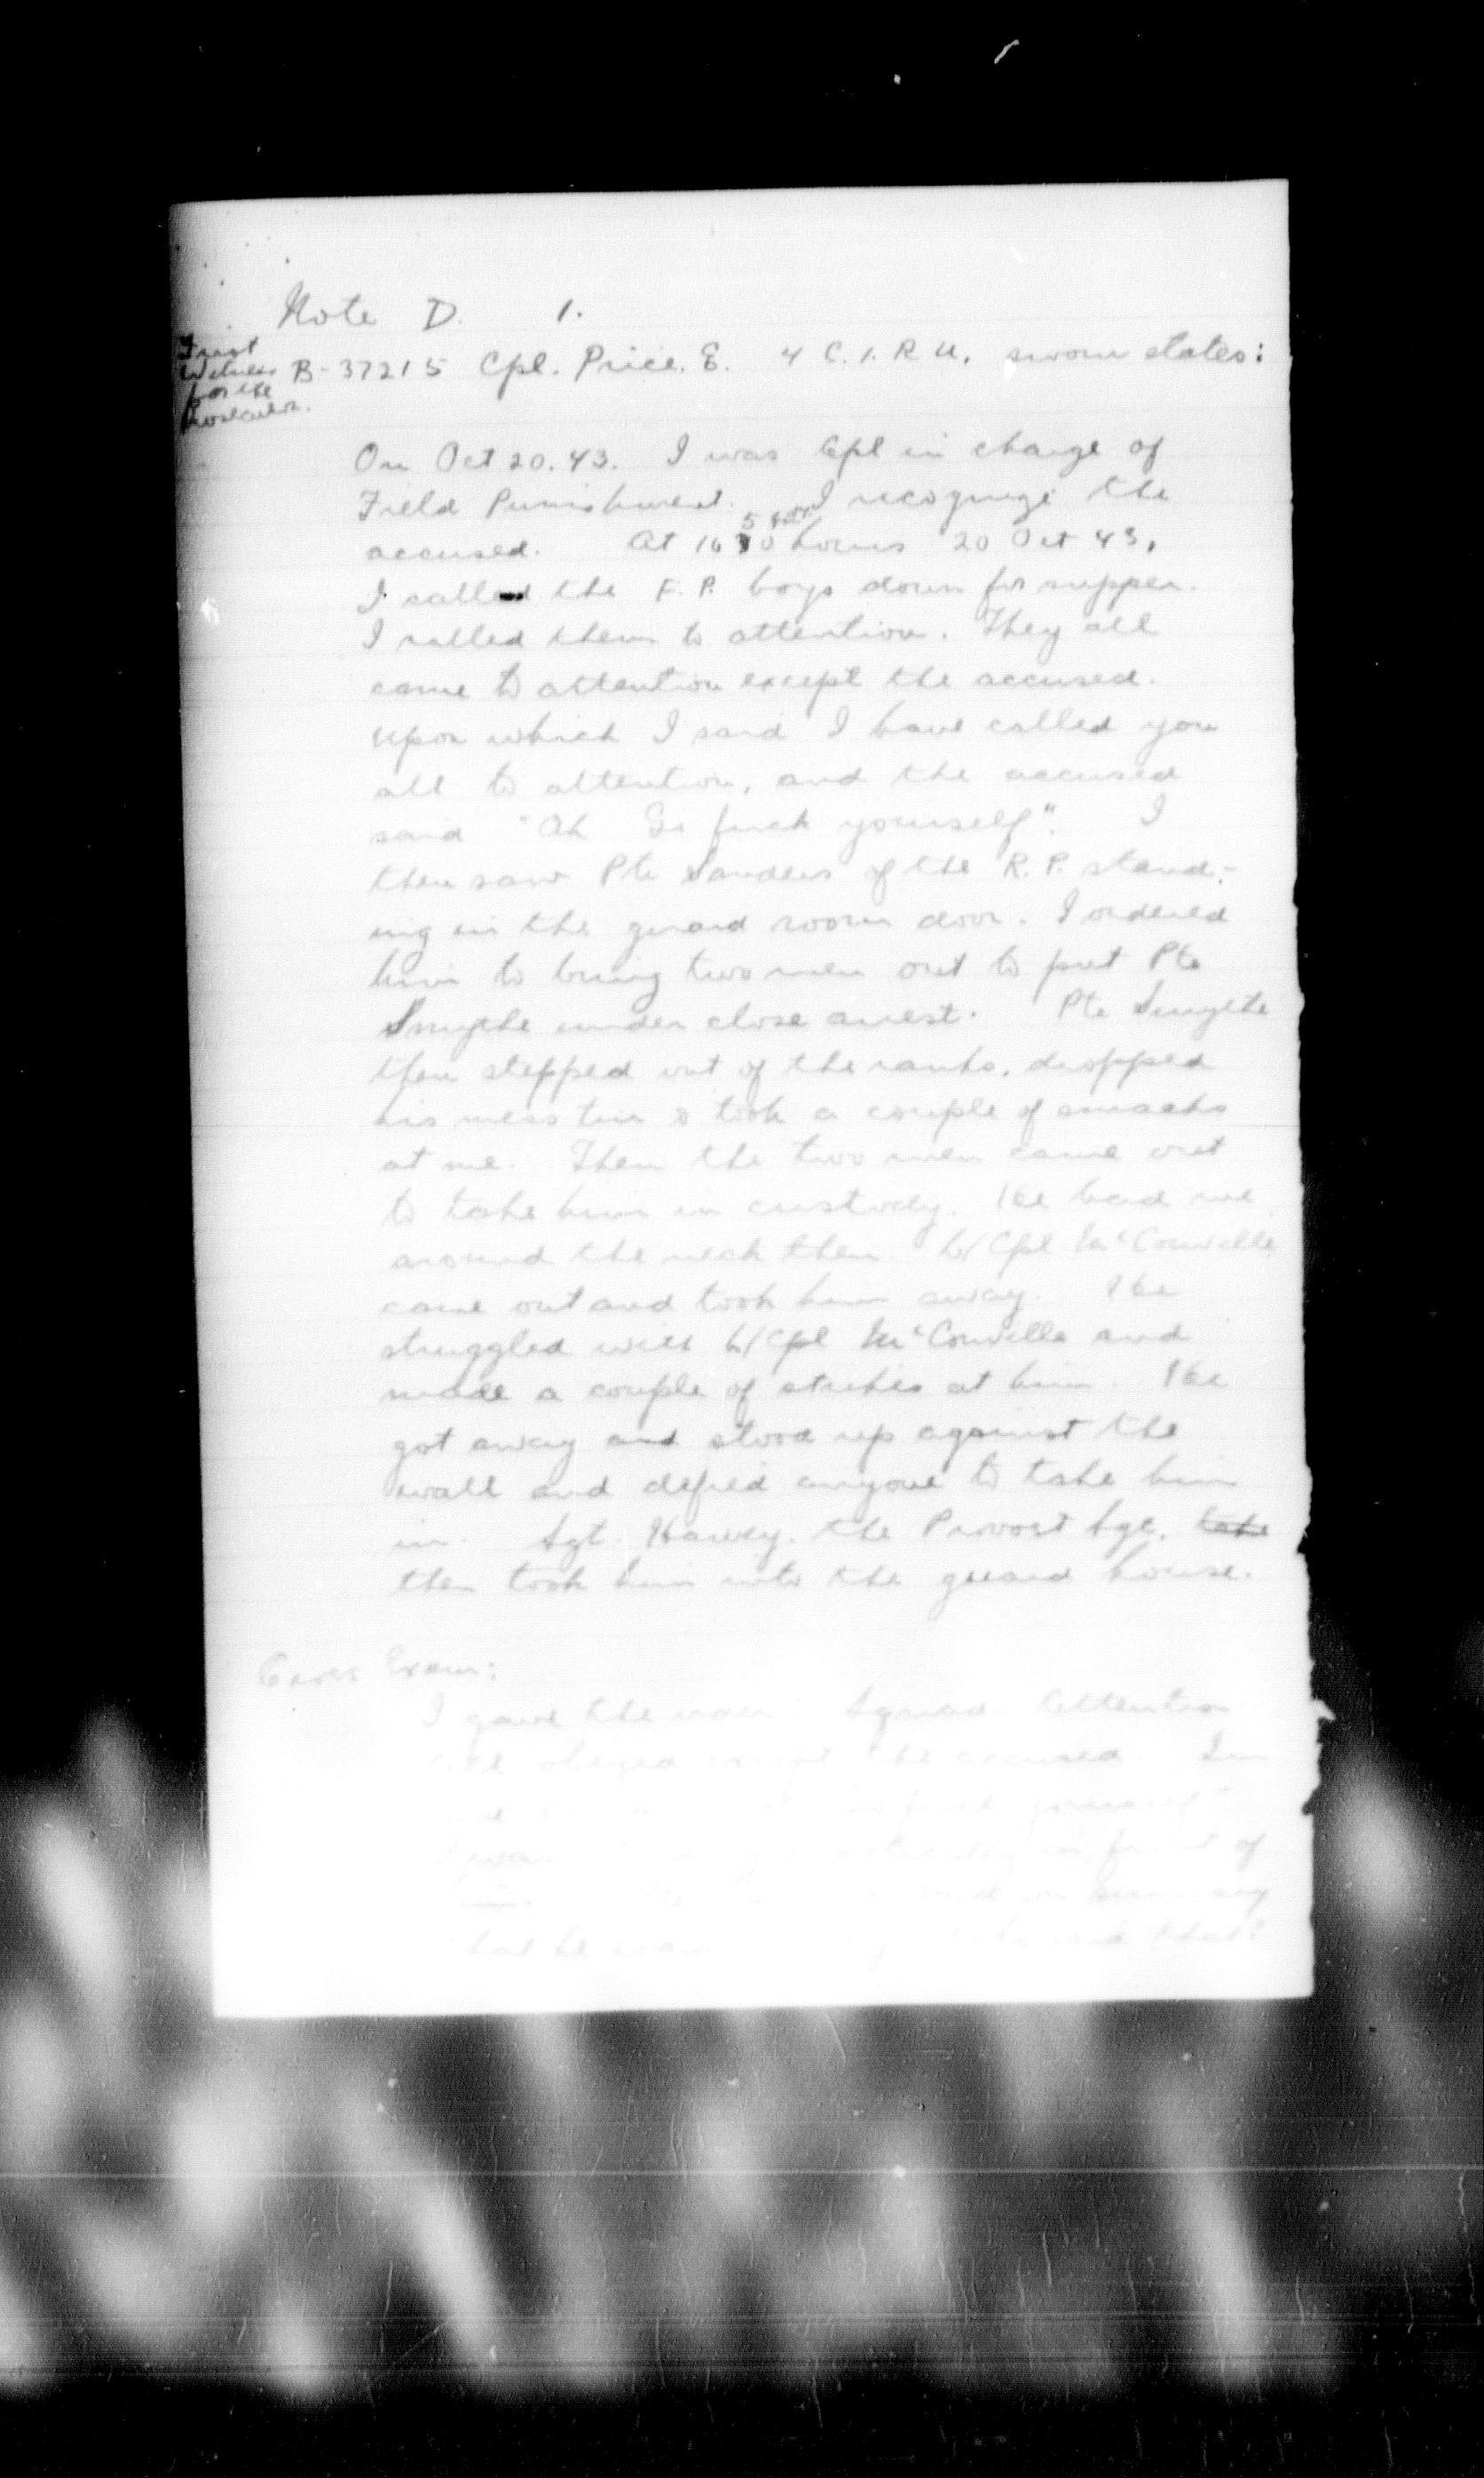 Note D. 1.
First
Witness
for the
Prosecution.
B-37215 Cpl. Price. E. 4 C.I.R.U. sworn states:
On Oct 20. 43. I was Cpl in charge of
Field Punishment. I recognize the
accused. At 1650 hours 20 Oct 43,
I called the F.P. boys down for supper.
I called them to attention. They all
came to attention except the accused.
Upon which I said I have called you
all to attention, and the accused
said "Ah Go fuck yourself". I
then saw Pte Sanders of the R.P. stand-
ing in the guard room door. I ordered
him to bring two men out to put Pte
Smythe under close arrest. Pte Smythe
then stepped out of the ranks, dropped
his mess tin & took a couple of smacks
at me. Then the two men came out
to take him in custody. He had me
around the neck then. L/Cpl McConville
came out and took him away. He
struggled with L/Cpl McConville and
made a couple of strikes at him. He
got away and stood up against the
wall and defied anyone to take him
in. Sgt. the Provost Sgt. take
then took him into the guard house.
Cross Exam:
I gave the Squad Attention
all obeyed except the accused.
yourself"
was in front of
him say
that he said that?